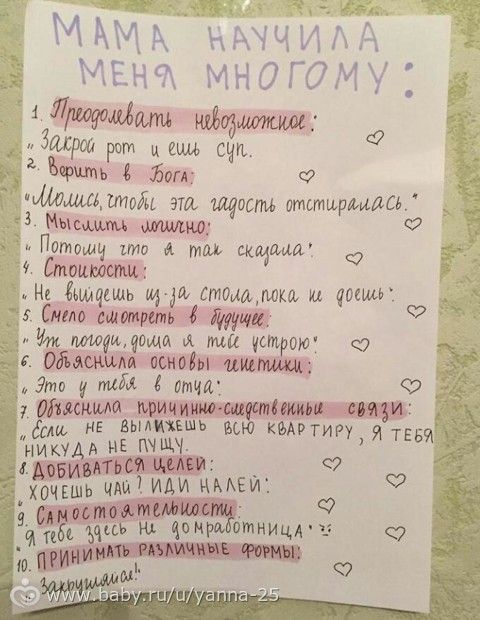 МАМА НАУЧИЛА
МЕНЯ МНОГОМУ:
1. Преодолевать невозможное:
"Закрой рот и ешь суп.
2. Верить в Бога:
"Молись, чтобы эта гадость отстиралась."
3. Мыслить логично:
"Потому что я так сказала".
4. Стойкости:
"Не выйдешь из-за стола, пока не доешь".
5. Смело смотреть в будущее:
"Уж погоди, дома я тебе устрою"
6. Объяснила основы генетики:
"Это у тебя в отца".
7. Объяснила причинно-следственные связи:
"Если НЕ ВЫЛИЖЕШЬ ВСЮ КВАРТИРУ, Я ТЕБЯ
НИКУДА НЕ ПУЩУ.
8. ДОБИВАТЬСЯ ЦЕЛЕЙ:
"ХОЧЕШЬ ЧАЙ? ИДИ НАЛЕЙ".
9. САМОСТОЯТЕЛЬНОСТИ:
"Я тебе здесь не домработница".
10. ПРИНИМАТЬ РАЗЛИЧНЫЕ ФОРМЫ:
"Закругляйся!"
www.baby.ru/u/yanna-25